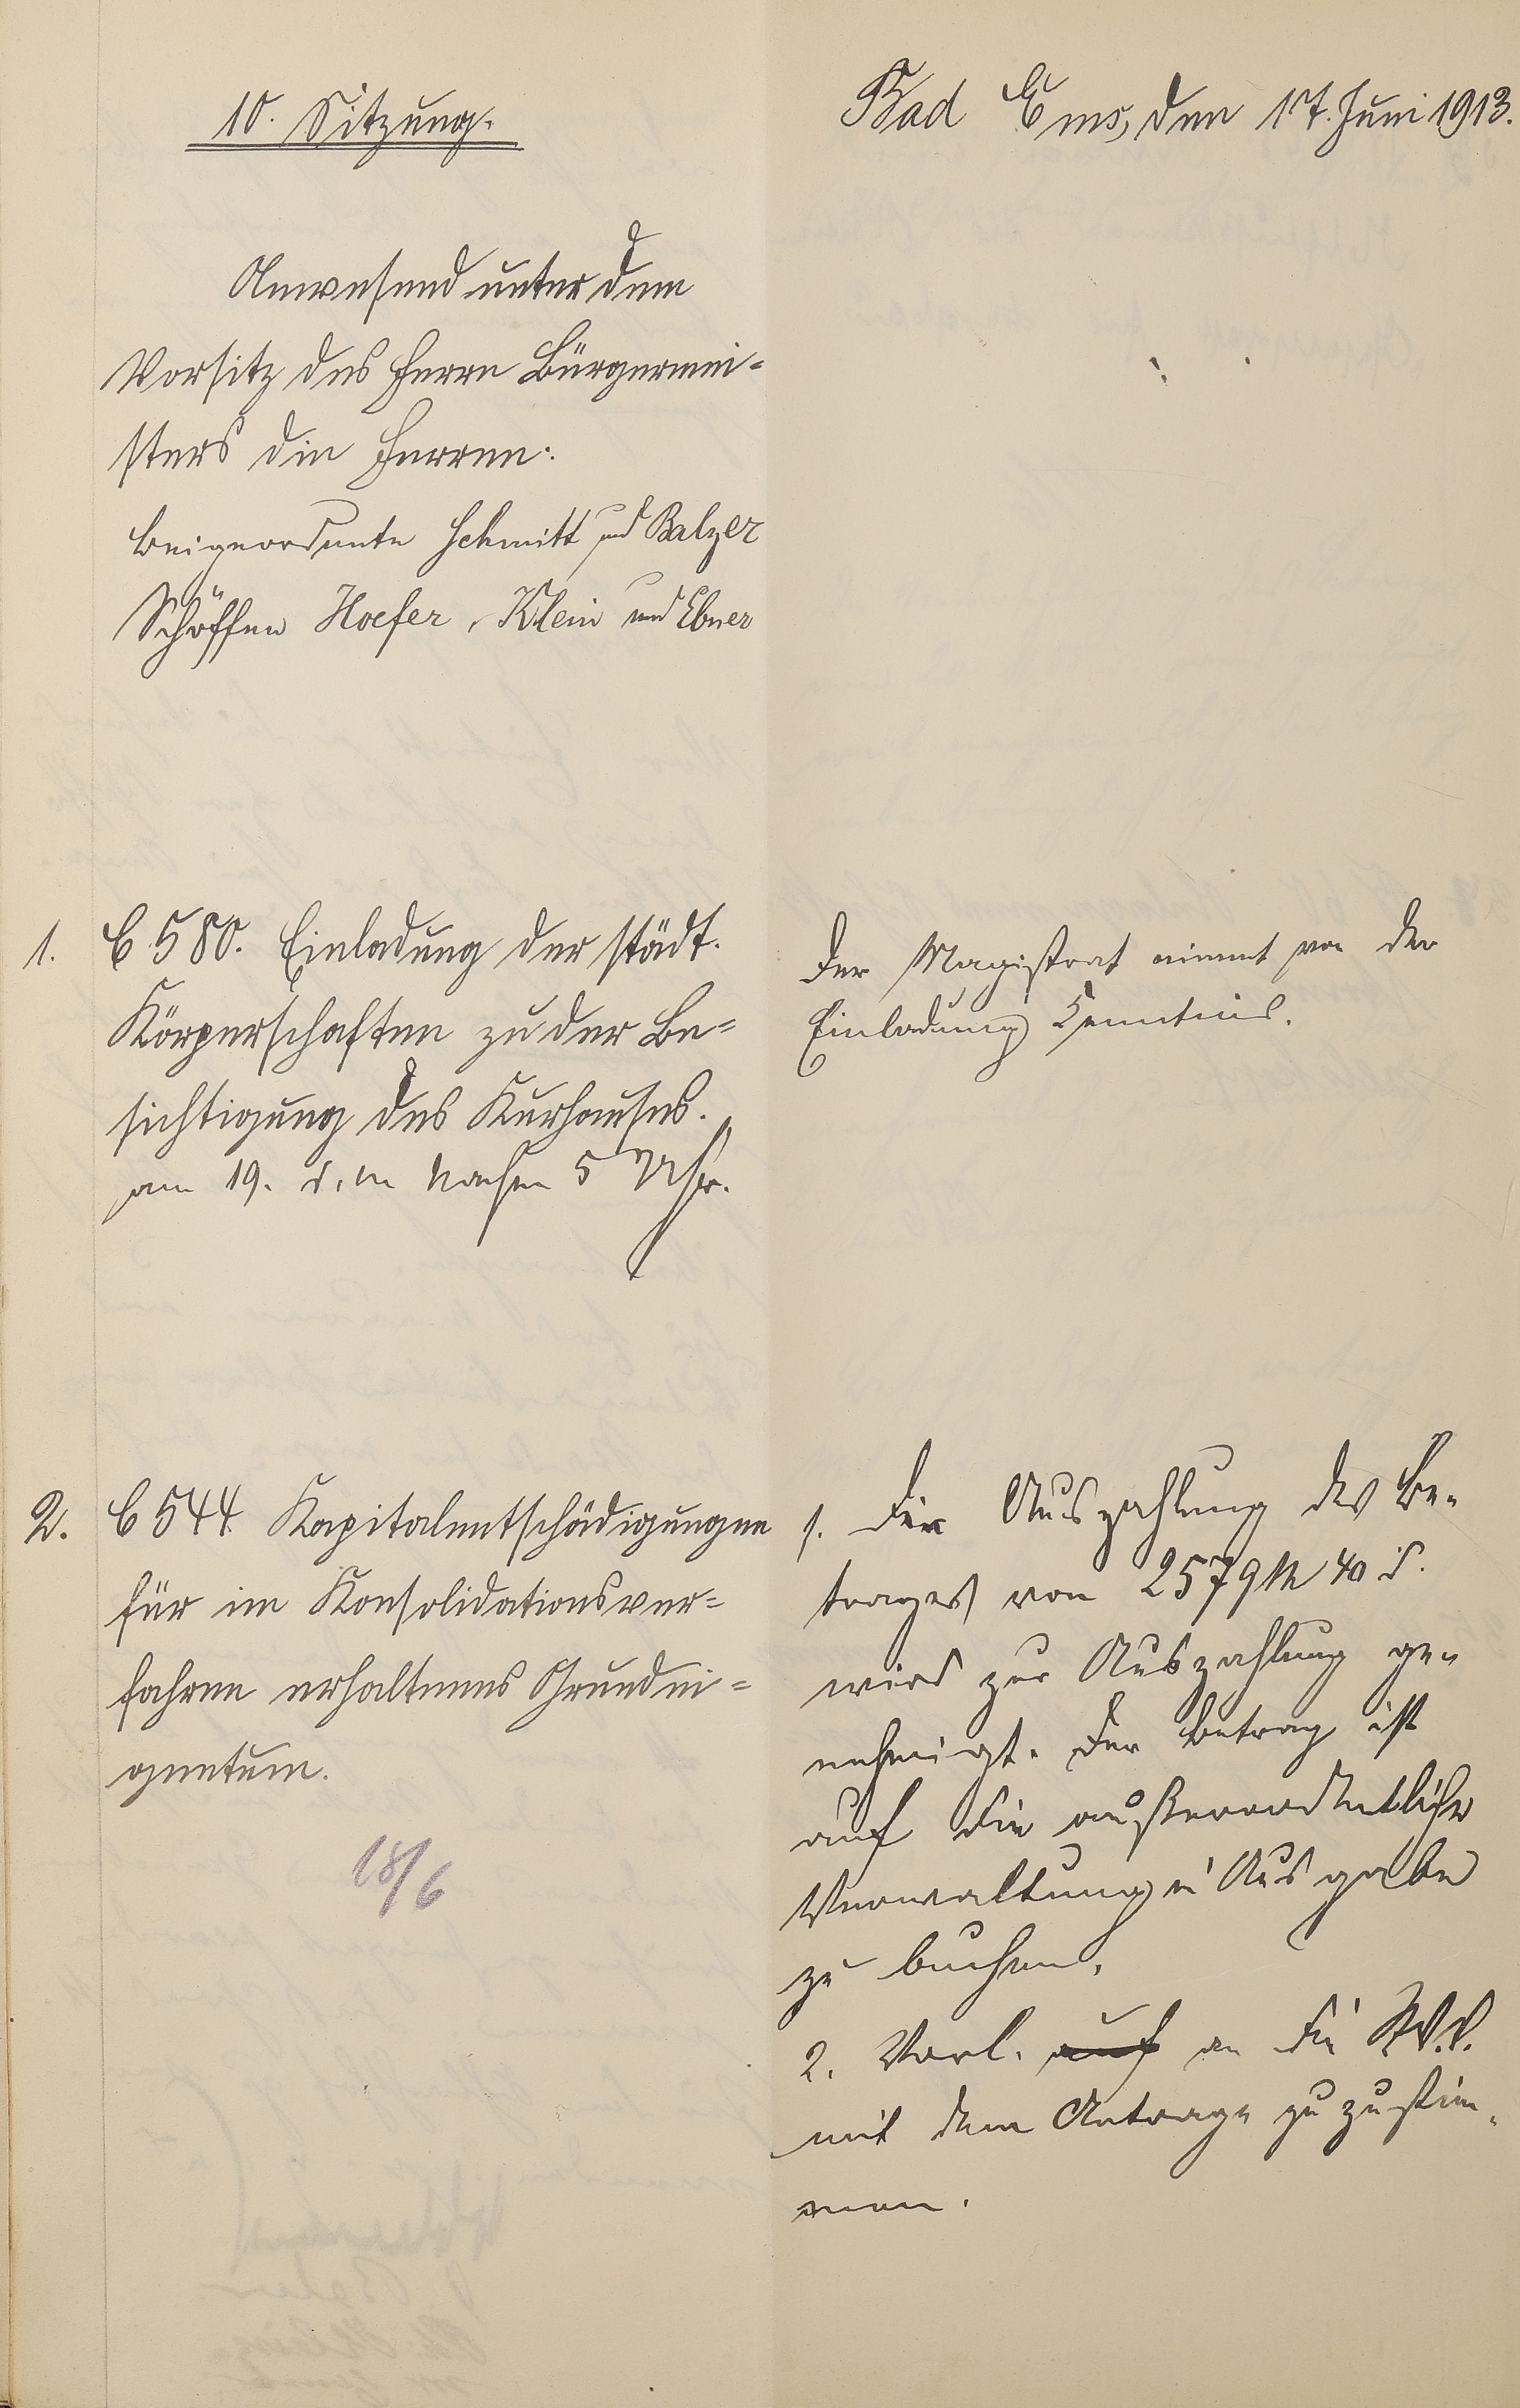 10. Sitzung.
Bad Ems, den 17. Juni 1913.
Anwesend unter dem
Vorsitz des Herrn Bürgermei=
sters die Herren:
Beigeordnete Schmitt und Balzer
Schöffen Hoefer, Klein und Ebner
1. C 580. Einladung der städt.
Körperschaften zu der Be=
sichtigung des Kurhauses.
am 19. d. M. Nachm 5 Uhr.
Der Magistrat nimmt von der
Einladung Kenntnis.
2. C 544. Kapitalentschädigungen
für im Konsolidationsver=
fahren erhaltenes Grundei=
gentum.
18/6
1. Die Auszahlung des Be-
trages von 2579 M 40 d.
wird zur Auszahlung ge-
nehmigt. Der Betrag ist
auf die außerordentliche
Verwaltung in Ausgabe
zu buchen.
2. Vorl. auf an die St.V.V.
mit dem Antrage zuzustim-
men.